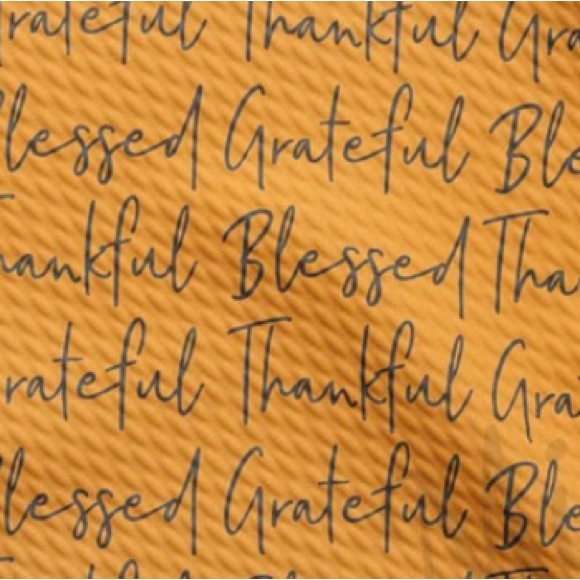 rateful Thankful Gra
lessed Grateful Ble
ankful Blessed Tha
rateful Thankful Gra
lessed Grateful Ble